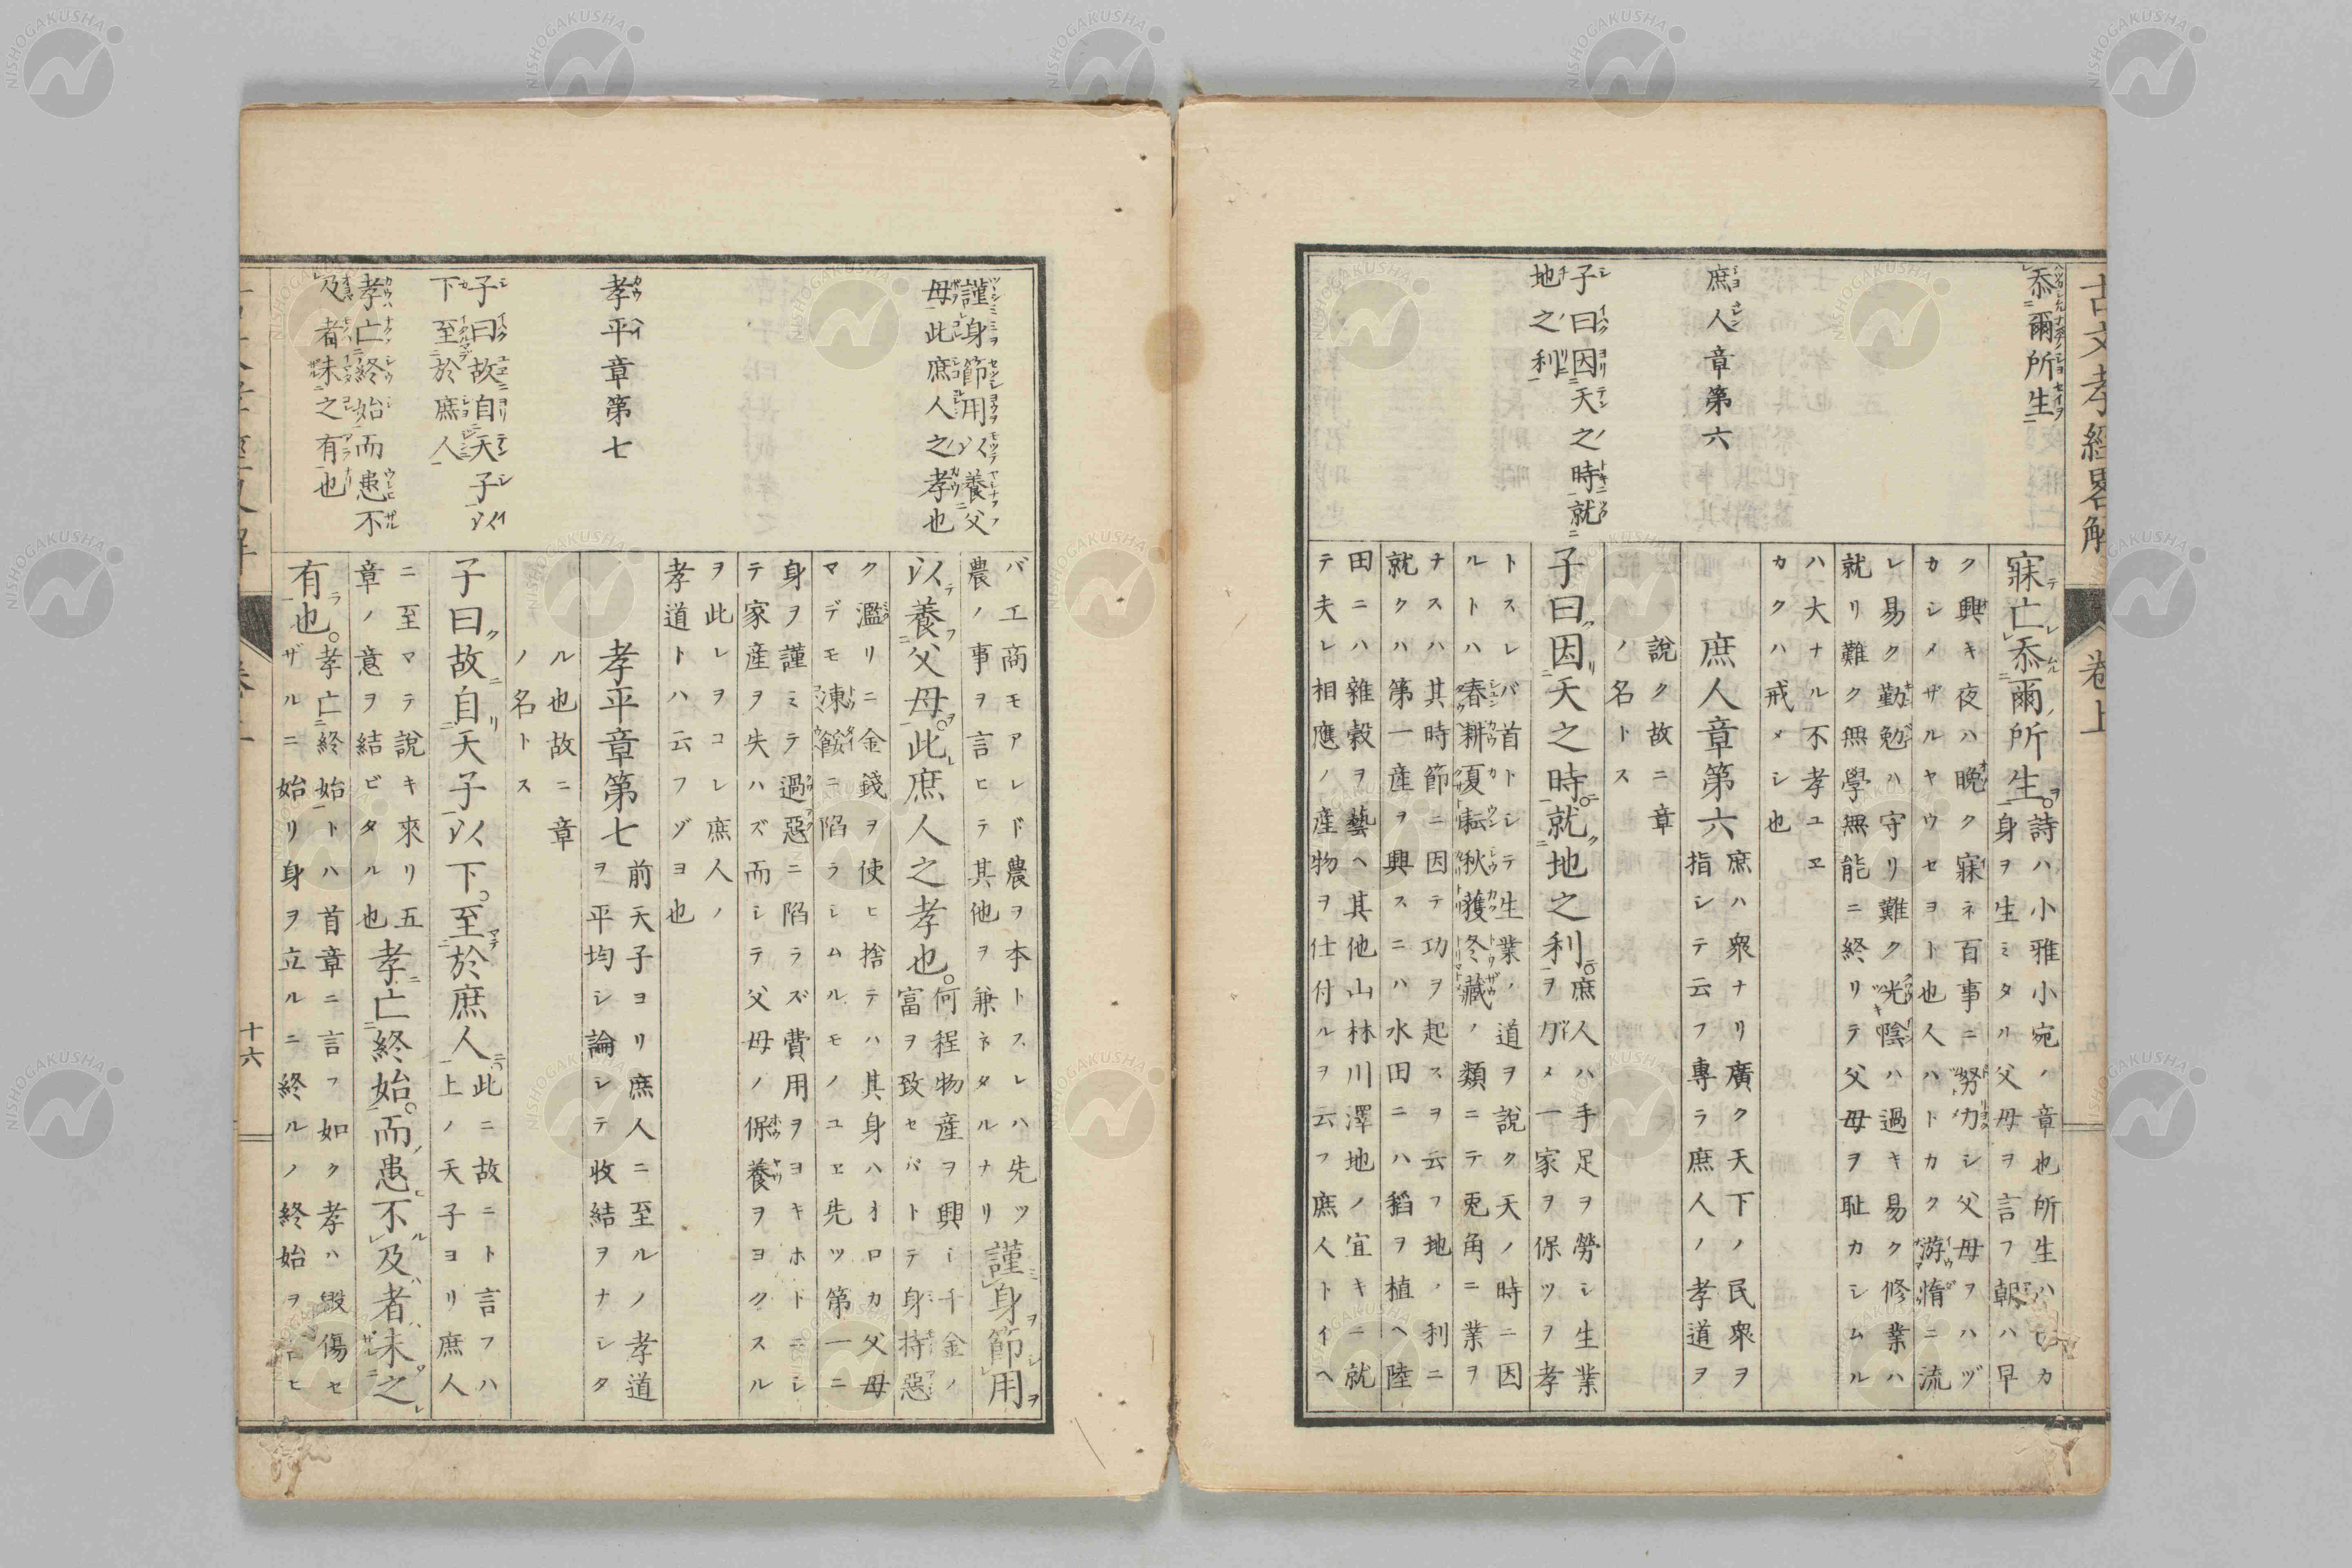 古文孝經畧解 卷上
忝爾所生
庶人章第六
子曰因天之時就
地之利
寐亡忝爾所生。詩ハ小雅小宛ノ章也所生ハ カ
身ヲ生ミタル父母ヲ言フ朝ハ早
ク興キ夜ハ晩ク寐ネ百事ニ努力シ父母ヲハヅ
カシメザルヤウセヨト也人ハトカク游惰ニ流
レ易ク勤勉ハ守リ難ク光陰ハ過キ易ク修業ハ
就リ難ク無學無能ニ終リテ父母ヲ耻カシムル
ハ大ナル不孝ユヱ
カクハ戒メシ也
庶人章第六 庶ハ衆ナリ廣ク天下ノ民衆ヲ
指シテ云フ專ラ庶人ノ孝道ヲ
說ク故ニ章
ノ名トス
子曰因天之時。就地之利。庶人ハ手足ヲ勞シ生業
ヲ力メ一家ヲ保ツヲ孝
トスレバ首トシテ生業ノ道ヲ說ク天ノ時ニ因
ルトハ春耕夏耘秋獲冬藏ノ類ニテ兎角ニ業ヲ
ナスハ其時節ニ因テ功ヲ起スヲ云フ地ノ利ニ
就クハ第一産ヲ興スニハ水田ニハ稻ヲ植ヘ陸
田ニハ雜穀ヲ藝ヘ其他山林川澤地ノ宜キニ就
テ夫レ相應ノ産物ヲ仕付ルヲ云フ庶人トイヘ
謹身節用以養父
母此庶人之孝也
孝平章第七
子曰故自天子以
下至於庶人
孝亡終始而患不
及者未之有也
バ工商モアレド農ヲ本トスレハ先ツ謹身節用
農ノ事ヲ言ヒテ其他ヲ兼ネタルナリ
以養父母。此庶人之孝也。何程物産ヲ興シ千金ノ
富ヲ致セバトテ身持惡
ク濫リニ金錢ヲ使ヒ捨テハ其身ハオロカ父母
マデモ凍餒ニ陷ラシムルモノユヱ先ツ第一ニ
身ヲ謹ミテ過惡ニ陷ラズ費用ヲヨキホドニシ
テ家産ヲ失ハズ而シテ父母ノ保養ヲヨクスル
ヲ此レヲコレ庶人ノ
孝道トハ云フゾヨ也
孝平章第七 前天子ヨリ庶人ニ至ルノ孝道
ヲ平均シ論シテ收結ヲナシタ
ル也故ニ章
ノ名トス
子曰故自天子以下。至於庶人 此ニ故ニト言フハ
上ノ天子ヨリ庶人
ニ至マテ說キ來リ五
章ノ意ヲ結ビタル也 孝亡終始。而患不及者未之
有也。孝亡終始トハ首章ニ言フ如ク孝ハ毀傷セ
ザルニ始リ身ヲ立ルニ終ルノ終始ヲ ヒ
十六
NISHOGAKUSHA